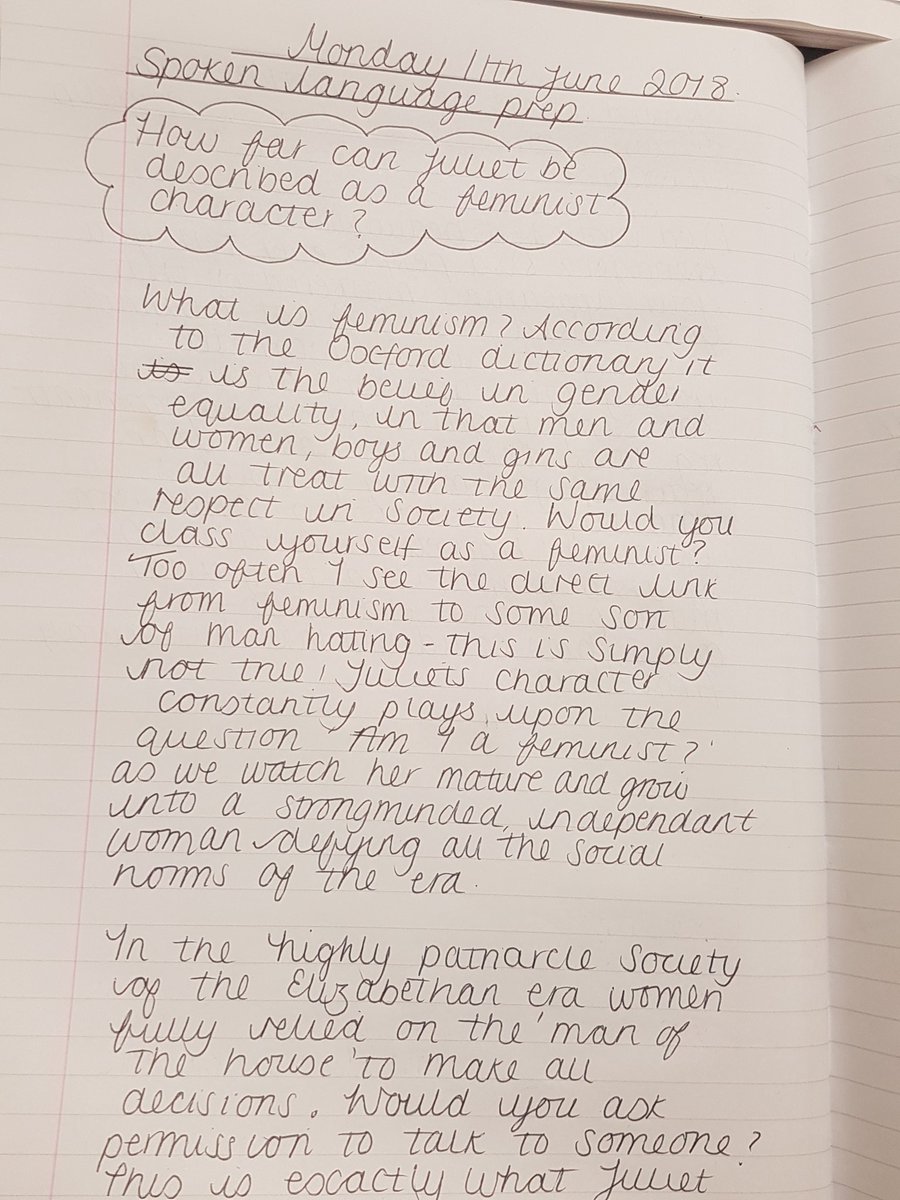 Monday 11th June 2018.
Spoken language prep
How far can Juliet be
described as a feminist
character?
What is feminism? According
to the Oxford dictionary it
is is the belief in gender
equality, in that men and
women, boys and girls are
all treat with the same
respect in society. Would you
class yourself as a feminist?
Too often I see the direct link
from feminism to some sort
of man hating - this is simply
not true! Juliets character
constantly plays upon the
question 'Am I a feminist?'
as we watch her mature and grow
into a strongminded, independant
woman defying all the social
norms of the era.
In the highly patriarcle society
of the Elizabethan era women
fully relied on the 'man of
the house' to make all
decisions. Would you ask
permission to talk to someone?
This is excactly what Juliet